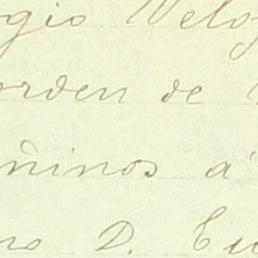 gio Velo
orden de
niños á
no D. Eu